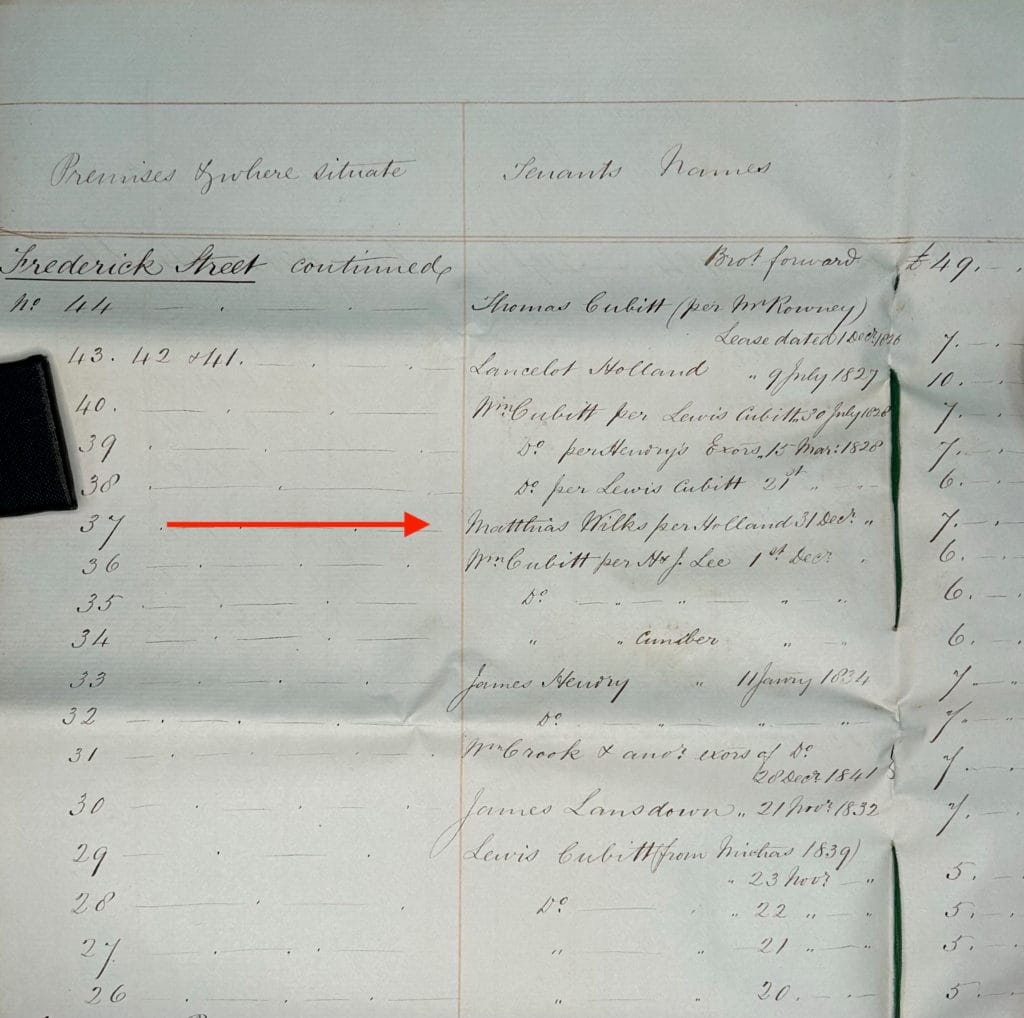 Premises & where situate Tenants Names
Frederick Street continued Brot forward £ 49. – .
No 44 Thomas Cubitt (per Mr Rowney)
Lease dated 1 Decr 1826 7. – .
43. 42 & 41. Lancelot Holland " 9 July 1827 10. – .
40. Wm Cubitt per Lewis Cubitt " 30 July 1828 7. – .
39 Do per Hendry's Exors " 15 Mar: 1828 7. – .
38 Do per Lewis Cubitt 21st " " 6. – .
37 Matthias Wilks per Holland 31 Decr " 7. – .
36 Wm Cubitt per H & J. Lee 1st Decr " 6. – .
35 Do " " " " 6. – .
34 " " Cumber " " 6. – .
33 James Hendry " 11 Janry 1834 7 – "
32 Do " " " 7 " – "
31 Wm Crook & anor exors of Do
28 Decr 1841 7. – .
30 James Lansdown " 21 Novr 1832 7. – .
29 Lewis Cubitt (from Michas 1839)
" 23 Novr – " 5. – .
28 Do " 22 " – " 5. – .
27 " " 21 " – " 5. – .
26 " " 20. – . 5. – .